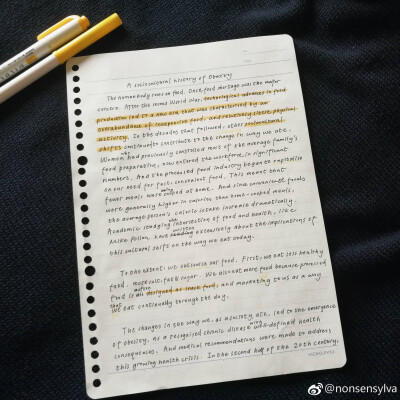 A sociocultural history of Obesity
The human body runs on food. Once, food shortage was the major
concern. After the second World War, technological advances in food
production led to a new era that was characterised by an
overabundance of inexpensive food, and relatively little physical
activity. In the decades that followed, other sociocultural
shifts continued to contribute to the change in way we ate.
Women who had previously controlled most of the average family's
food preparation, now entered the workforce, in significant
numbers. And the processed food industry began to capitalise
on our need for fast, convenient food. This meant that
fewer meals were being cooked at home. And since convenience foods
were generally higher in calories than home-cooked meals,
the average person's caloric intake increase dramatically.
Academic studying intersection of food and health, like
Mike Pollan, have written extensively about the implications of
this cultural shift on the way we eat today.
To the extent: we outsource our food. First, we eat less healthy
food, more salt, fat & sugar. We also eat more food because processed
food is often designed as snack food, and marketing to us as a way
that we eat continually through the day.
The changes in the way we, as a society ate, led to the emergence
of obesity, as a recognised chronic disease with well-defined health
consequences. And medical recommendations were made to address
this growing health crisis. In the second half of the 20th century,
@nonsensylva